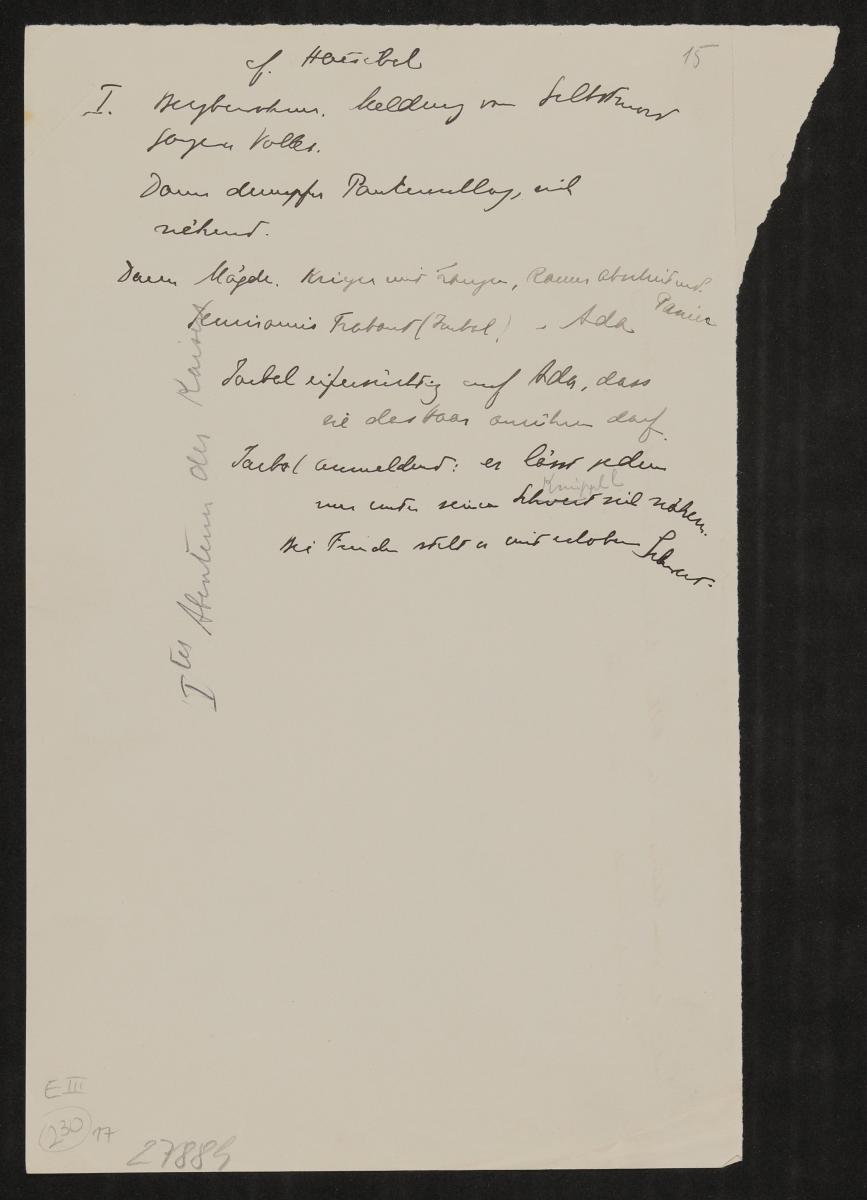 cf. Haeckel
15
I. Bergbewohner. Meldung vom Selbstmord
ganzen Volkes.
Dann dumpfer Paukenschlag, sich
nähend.
Dann Mägde. Krieger mit Zangen, Raum abschliessend.
Panier
Semiramis Trabant (Jarbal) – Ada
Jarbal eifersüchtig auf Ada, dass
sie das Haar anrühren darf.
Jarbal anmeldend: er lässt jeden
Knüppel
nur unter seinem Schwert sich nähern.
Bei Frieden steht er mit erhobenem Schwert.
Ites Abenteuer des Kaisers
E III
230
17
27889